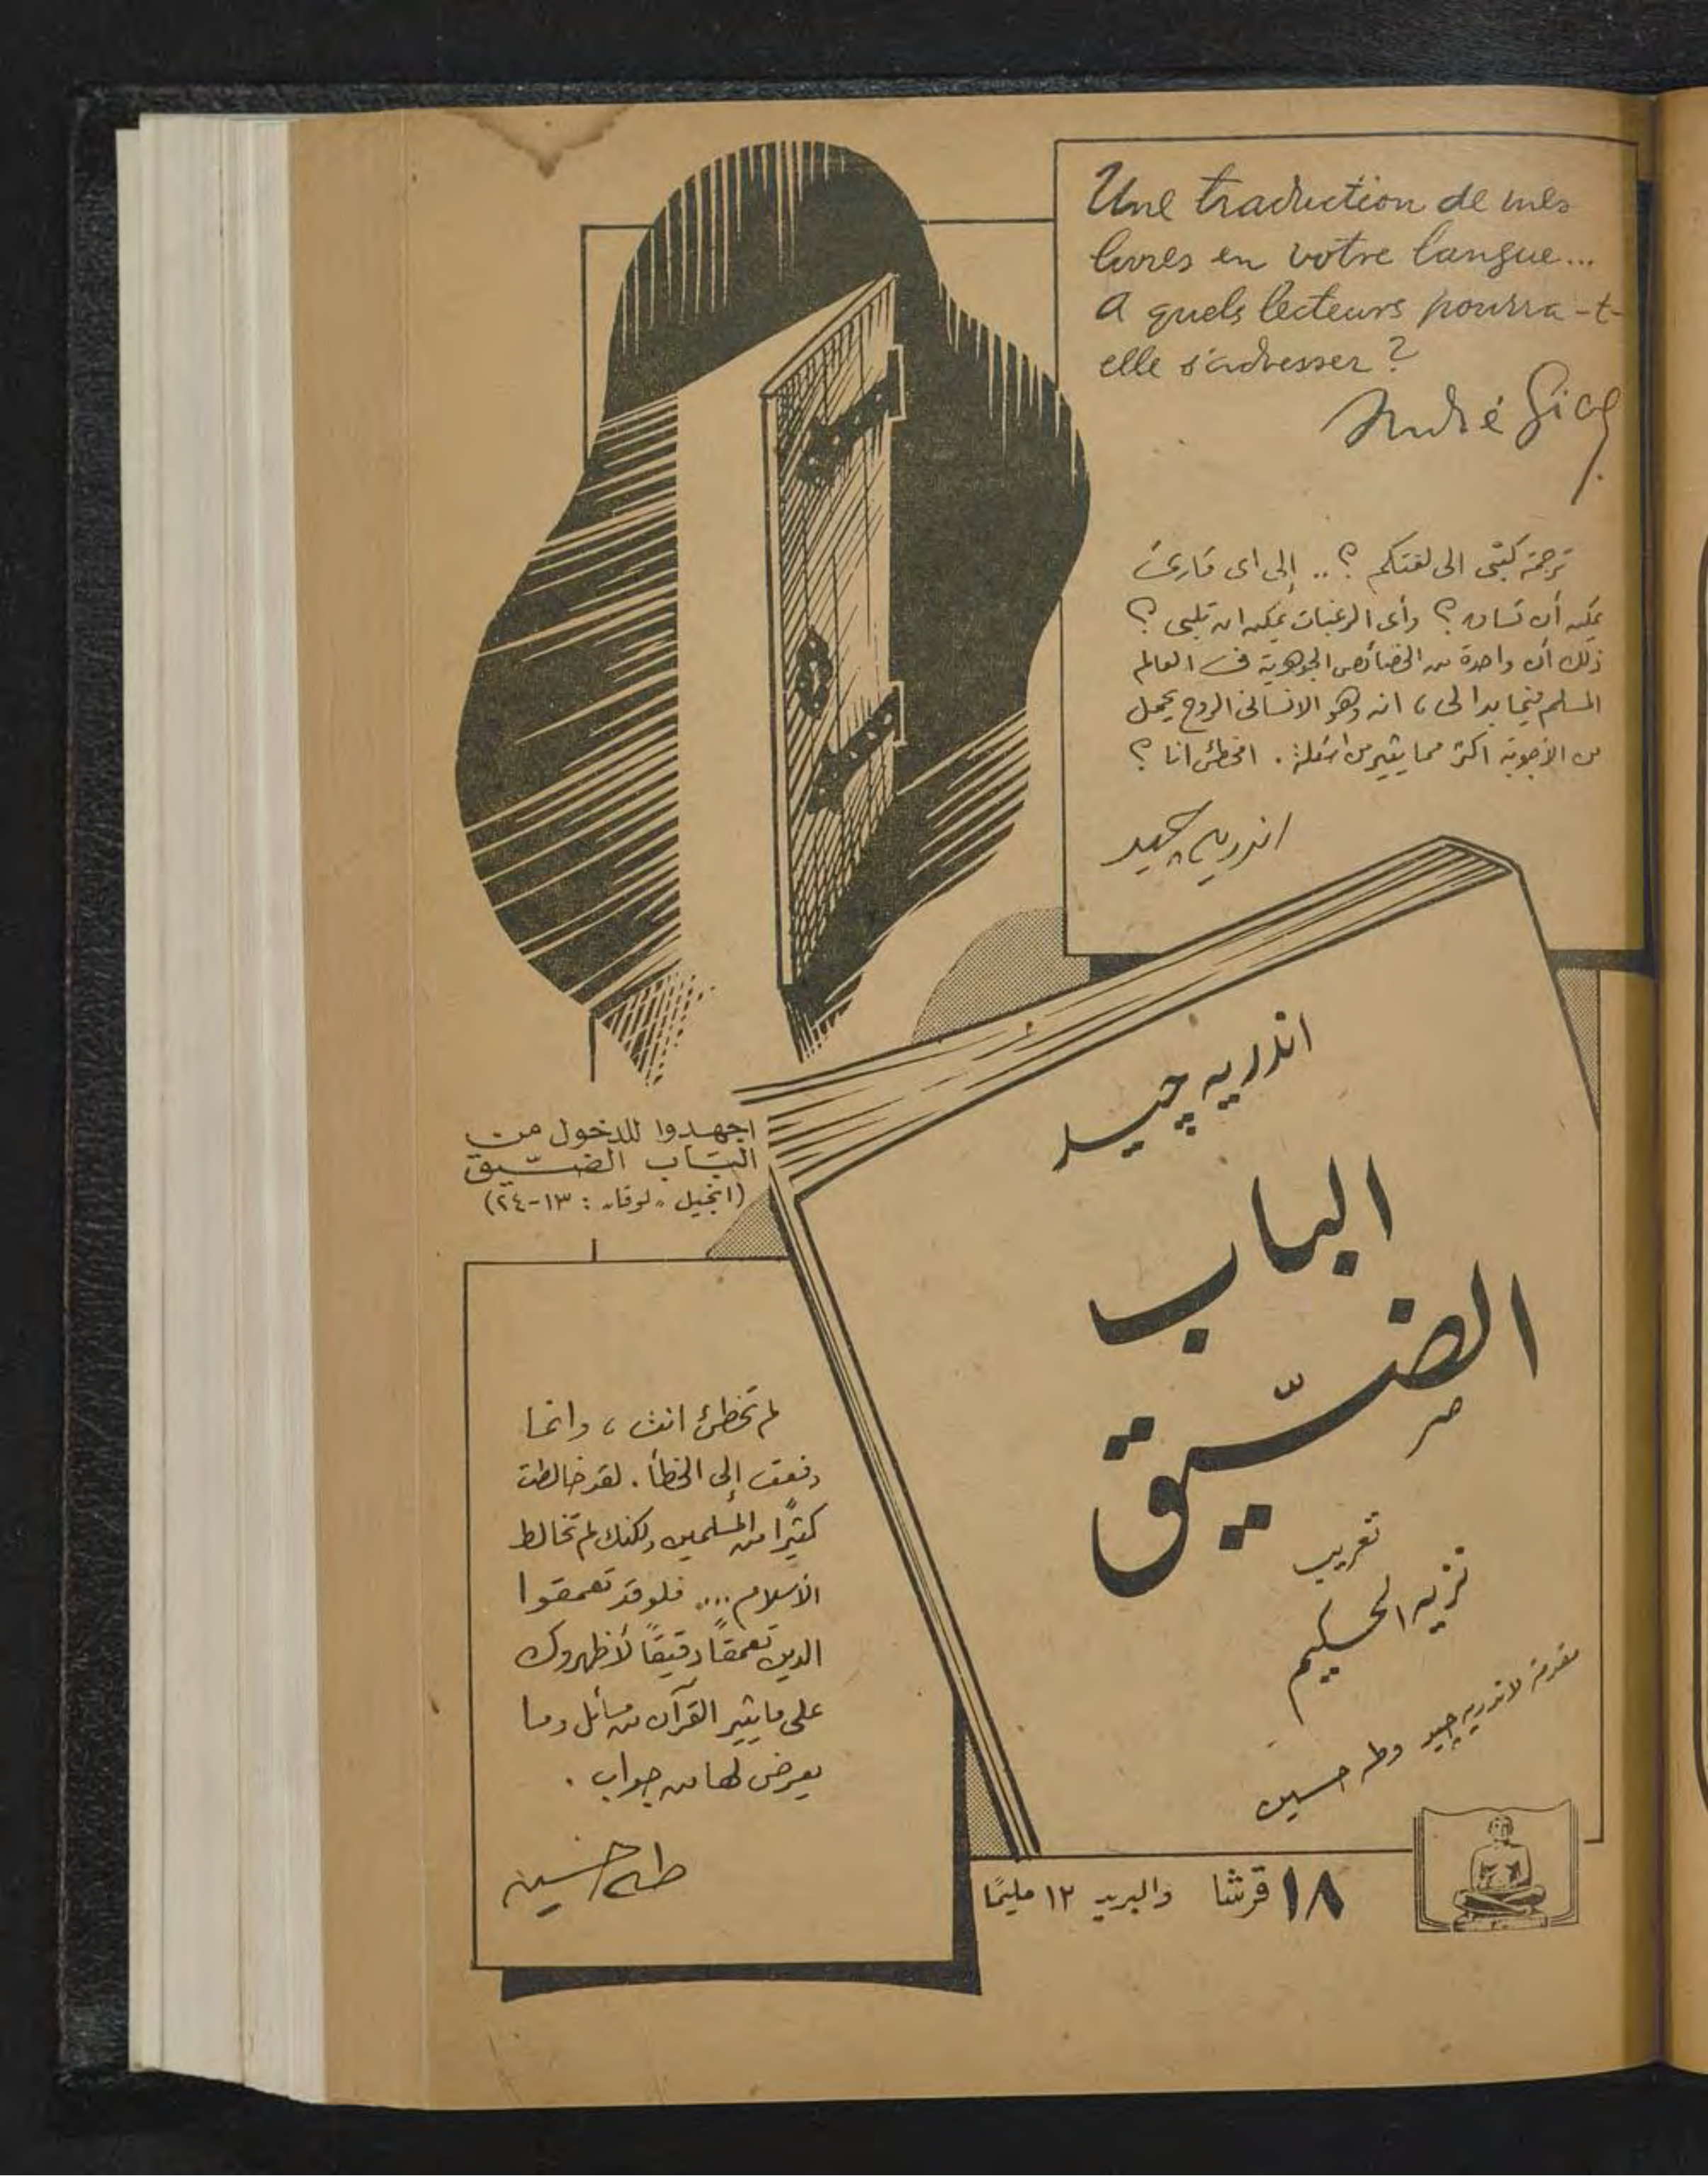 Une traduction de mes
livres en votre langue...
A quels lecteurs pourra-t-
elle s'adresser ?
André Gide
ترجمة كتبى الى لغتكم ؟ .. إلى اى قارئ
يمكن أن تساق ؟ وأى الرغبات يمكن ان تلبى ؟
ذلك أن واحدة من الخصائص الجوهرية فى العالم
المسلم فيما بدا لى ، انه وهو الانسانى الروح يحمل
من الأجوبة اكثر مما يثير من اسئلة . امخطئ انا ؟
اندريه چيد
اجهدوا للدخول من
الباب الضيّق
(انجيل "لوقا" : ١٣-٢٤)
اندريه چيد
الباب
الضيّق
تعريب
نزيه الحكيم
مقدمة لاندريه چيد وطه حسين
لم تخطئ انت ، وانما
دفعت إلى الخطأ . لقد خالطت
كثيرًا من المسلمين ولكنك لم تخالط
الأسلام .... فلو قد تعمقوا
الدين تعمقًا دقيقًا لأظهروك
على ما يثير القرآن من مسائل وما
يعرض لها من جواب .
طه حسين
١٨ قرشا والبريد ١٢ مليمًا